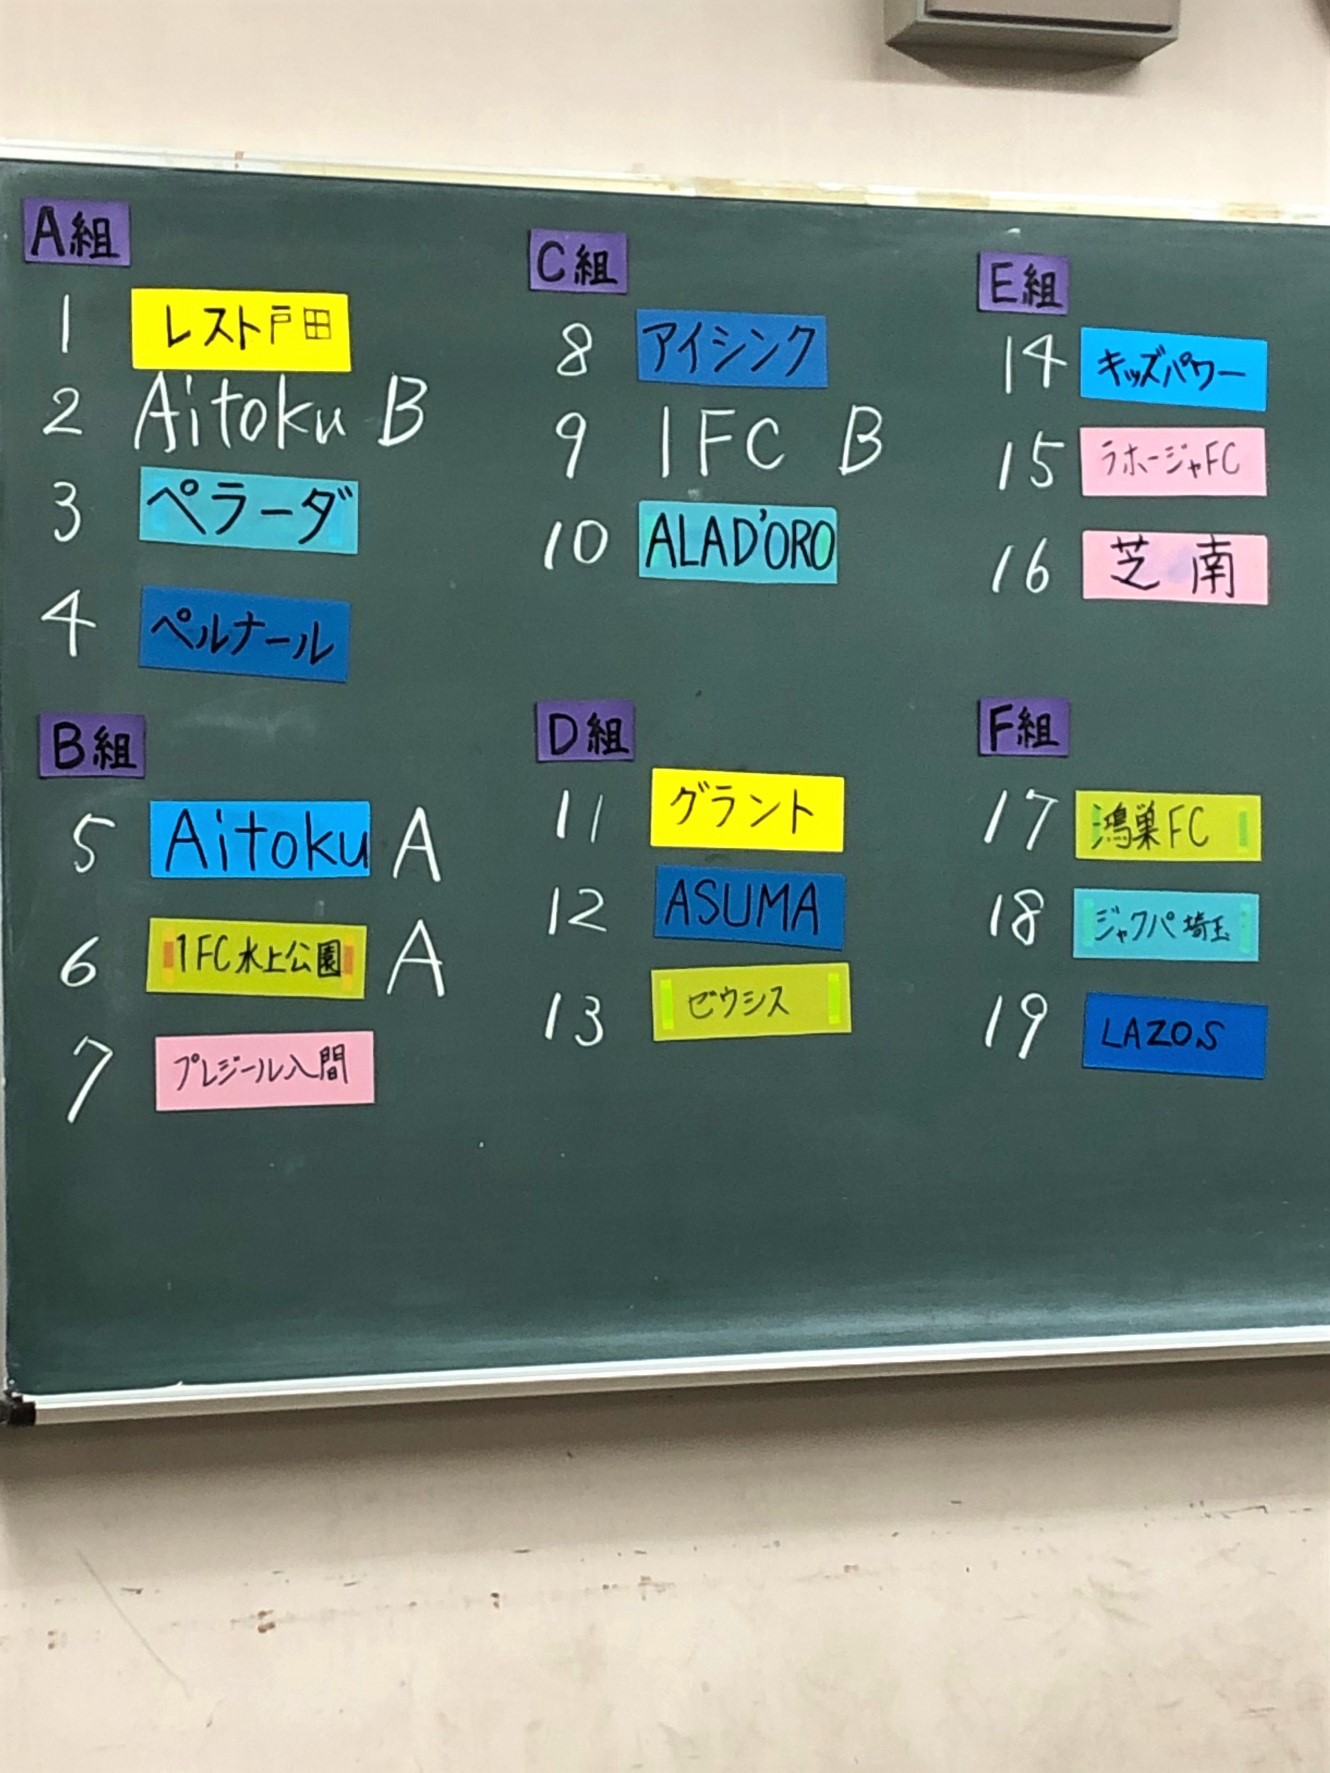 A組
1 レスト戸田
2 Aitoku B
3 ペラーダ
4 ペルナール
B組
5 Aitoku A
6 1FC水上公園 A
7 プレジール入間
C組
8 アイシンク
9 1FC B
10 ALAD'ORO
D組
11 グラント
12 ASUMA
13 ゼウシス
E組
14 キッズパワー
15 ラホージャFC
16 芝南
F組
17 鴻巣FC
18 ジャクパ埼玉
19 LAZOS